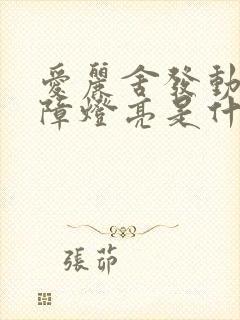 愛麗舍發動
障燈亮是什
張茆